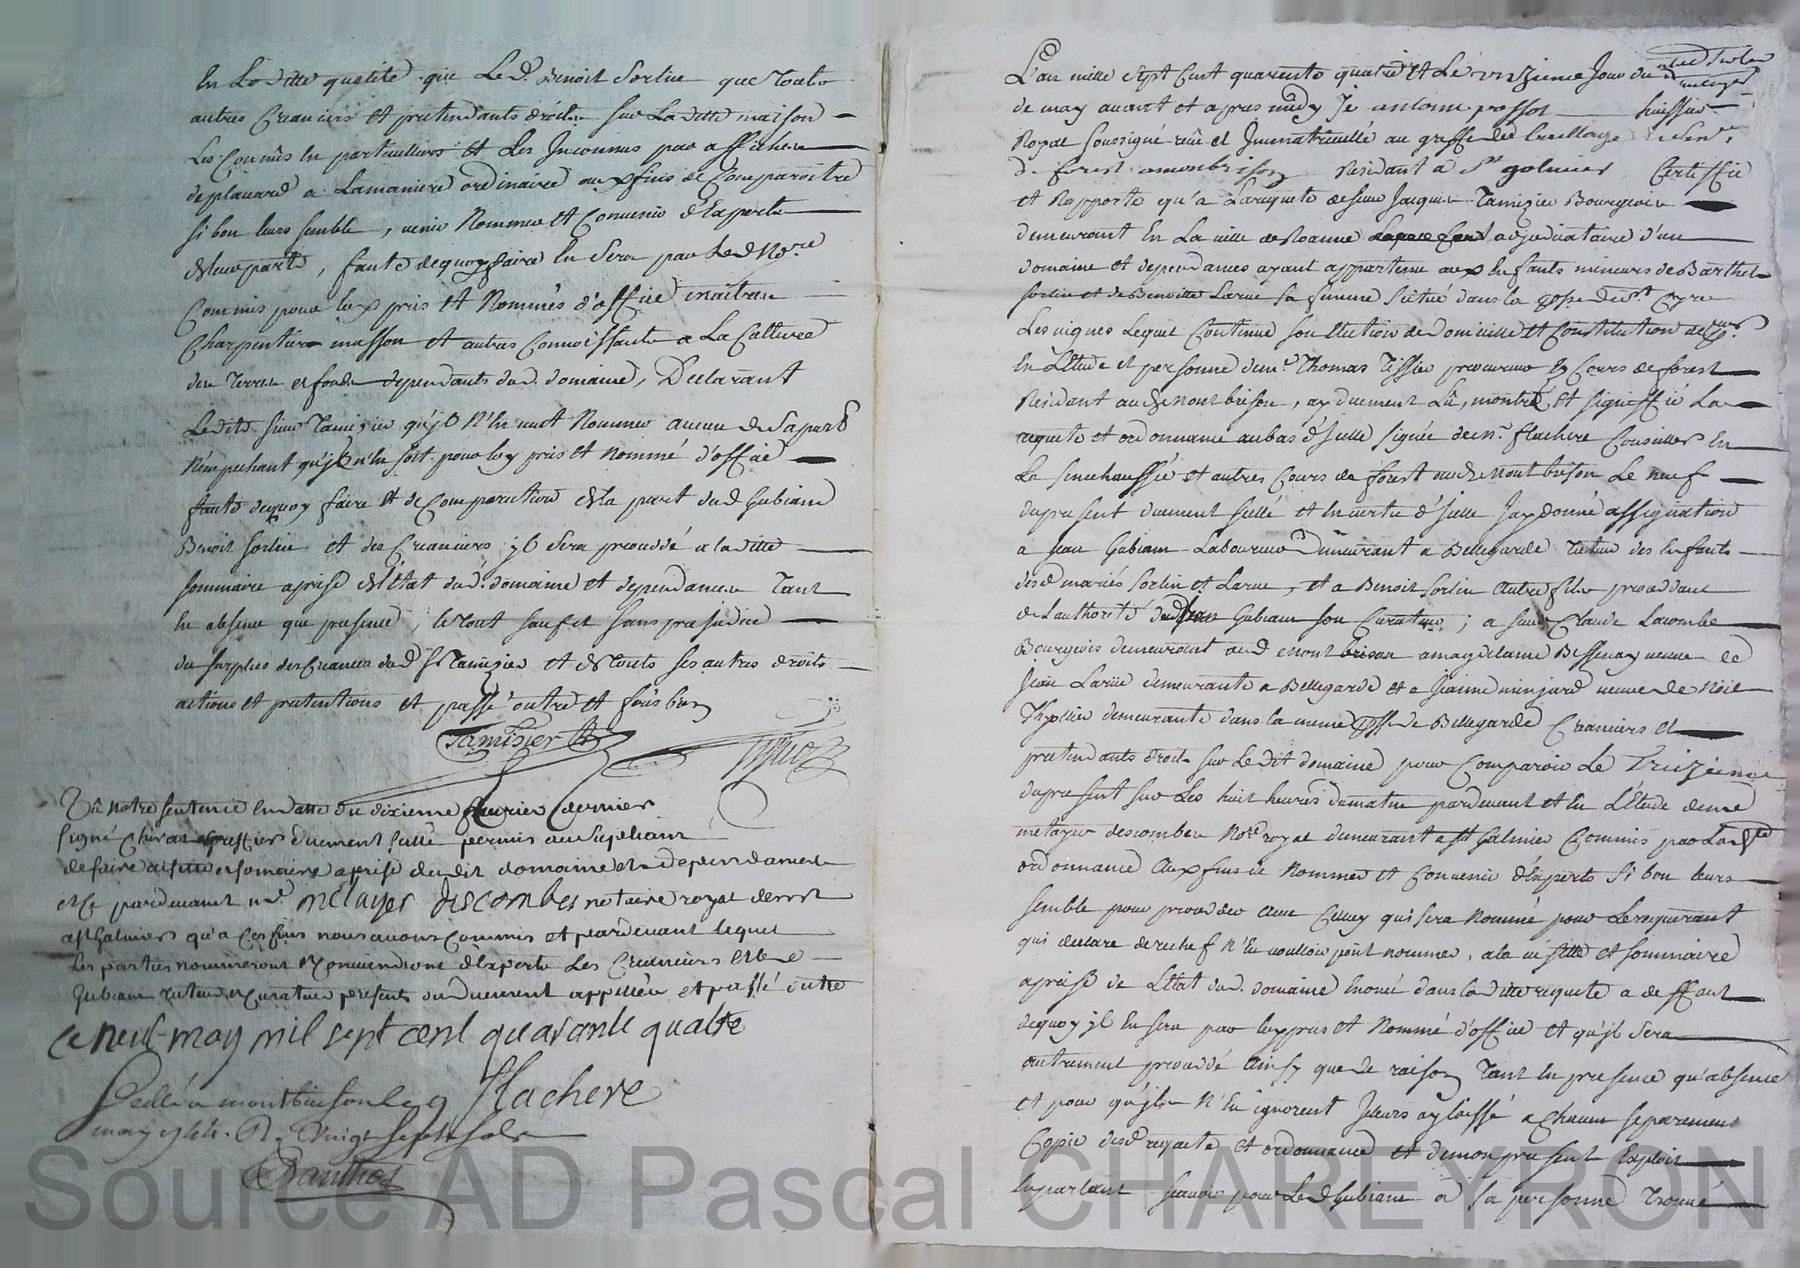 En La ditte qualité que Led. Benoit Sorlin que touts
autres Creanciers et pretendants droits sur La ditte maison
Les Connus En particuliers et Les Inconnus par affiches
de placard a Lamaniere ordinaire aux fins de Comparoitre
si bon leurs semble, venir Nommer et Convenir d'Experts
de leur part, faute dequoy faire En Sera par Led No.re
Commis pour Eux pris et Nommés d'office maitres
Charpentier masson et autres Connoissants a La Culture
des Terres et fonds dependants dud. domaine, Declarant
Ledit sieur Tamizier qu'jl N'En veut Nommer aucun de Sa part
N'empechant qu'jl n'En soit pour luy pris et nommé d'office
faute dequoy faire et de Comparution de la part dud Gubian
Benoit Sorlin et des Creanciers jl Sera proceddé a la ditte
Sommaire aprise de l'état dud. domaine et dependances Tant
En absence que presence, le tout sauf et sans prejudice
du surplus des Creances dud Sr Tamizier et de touts ses autres droits
actions et pretentions et passé outre et ferés bien
Tamisier
Vû Notre sentence En datte du dixieme fevrier dernier
signé Chirat greffier duement scellé permis au supliant
de faire aussitte et somaire aprise du dit domaine et dependances
et ce pardevant me Metayer Descombes notaire royal de
a St Galmier qu'a ces fins nous avons Commis et pardevant lequel
Les parties nommeront et Conviendront d'Experts Les Creanciers et le
Gubian tuteur et Curateur presents ou duement appellés et passé outre
ce neuf may mil sept cent quarante quatre
Flachere
Scellé a montbrison le 9
may 1744. R. Vingt sept sols
Barithot
L'an mille sept Cent quarante quatre et Le onzieme Jour du
de may avant et apres midy Je antoine possot huissier
Royal soussigné reçu et Immatriculé au greffe des bailliage
de forest a monbrison Residant à St galmier Certiffie
et Rapporte qu'à Larequete de sieur Jacques Tamizier Bourgeois
demeurant En La ville de Roanne adjudicataire d'un
domaine et dependances ayant appartenu aux Enfants mineurs de Barthel.
Sorlin et de Benoitte Larue sa femme situé dans la Psse de St Cyr
Les vignes Lequel Continue son Election de Domicille et Constitution de Pr.
En L'Etude et personne de me. Thomas Tissier procureur Es Cours de forest
Residant aud Montbrison, ay duement Lû, montré et signiffié La
requete et ordonnance au bas d'jcelle signée de mr. flachere Conseiller En
La senechaussée et autres Cours de forest aud Montbrison Le neuf
du present duement scellé et En vertu d'jcelle J'ay donné assignation
a Jean Gubian Laboureur demeurant a Bellegarde Tuteur des Enfants
desd mariés Sorlin et Larue, et a Benoit Sorlin autre fils proceddant
de L'authorité dud Jean Gubian son Curateur; a sieur Claude Lacombe
Bourgeois demeurant aud Montbrison a magdelaine Bessenay veuve de
Jean Larue demeurante a Bellegarde et a Jeanne minjard veuve de Noël
Thollin demeurante dans la meme Psse de Bellegarde Creanciers et
pretendants droits sur Le dit domaine pour Comparoir Le Treizieme
du present sur Les huit heures du matin pardevant et En L'Etude de me
metayer descombes No.re royal demeurant a St Galmier Commis par La de
ordonnance aux fins de Nommer et Convenir d'Experts Si bon leurs
semble pour procedder avec Celluy qui sera Nommé pour Le requerant
qui declare derechef N'En voulloir point nommer, a la ditte et sommaire
aprise de L'Etat dud. domaine Enoncé dans la ditte requete a deffaut
dequoy jl En sera par Eux pris et Nommé d'office et qu'jl sera
autrement proceddé ainsy que de raison Tant En presence qu'absence
et pour qu'jls N'En ignorent Je leurs ay laissé a Chacun separement
Copie desd requete et ordonnance et de mon present Exploit
En parlant scavoir pour Led Gubian a sa personne trouvé
Source AD Pascal CHAREYRON